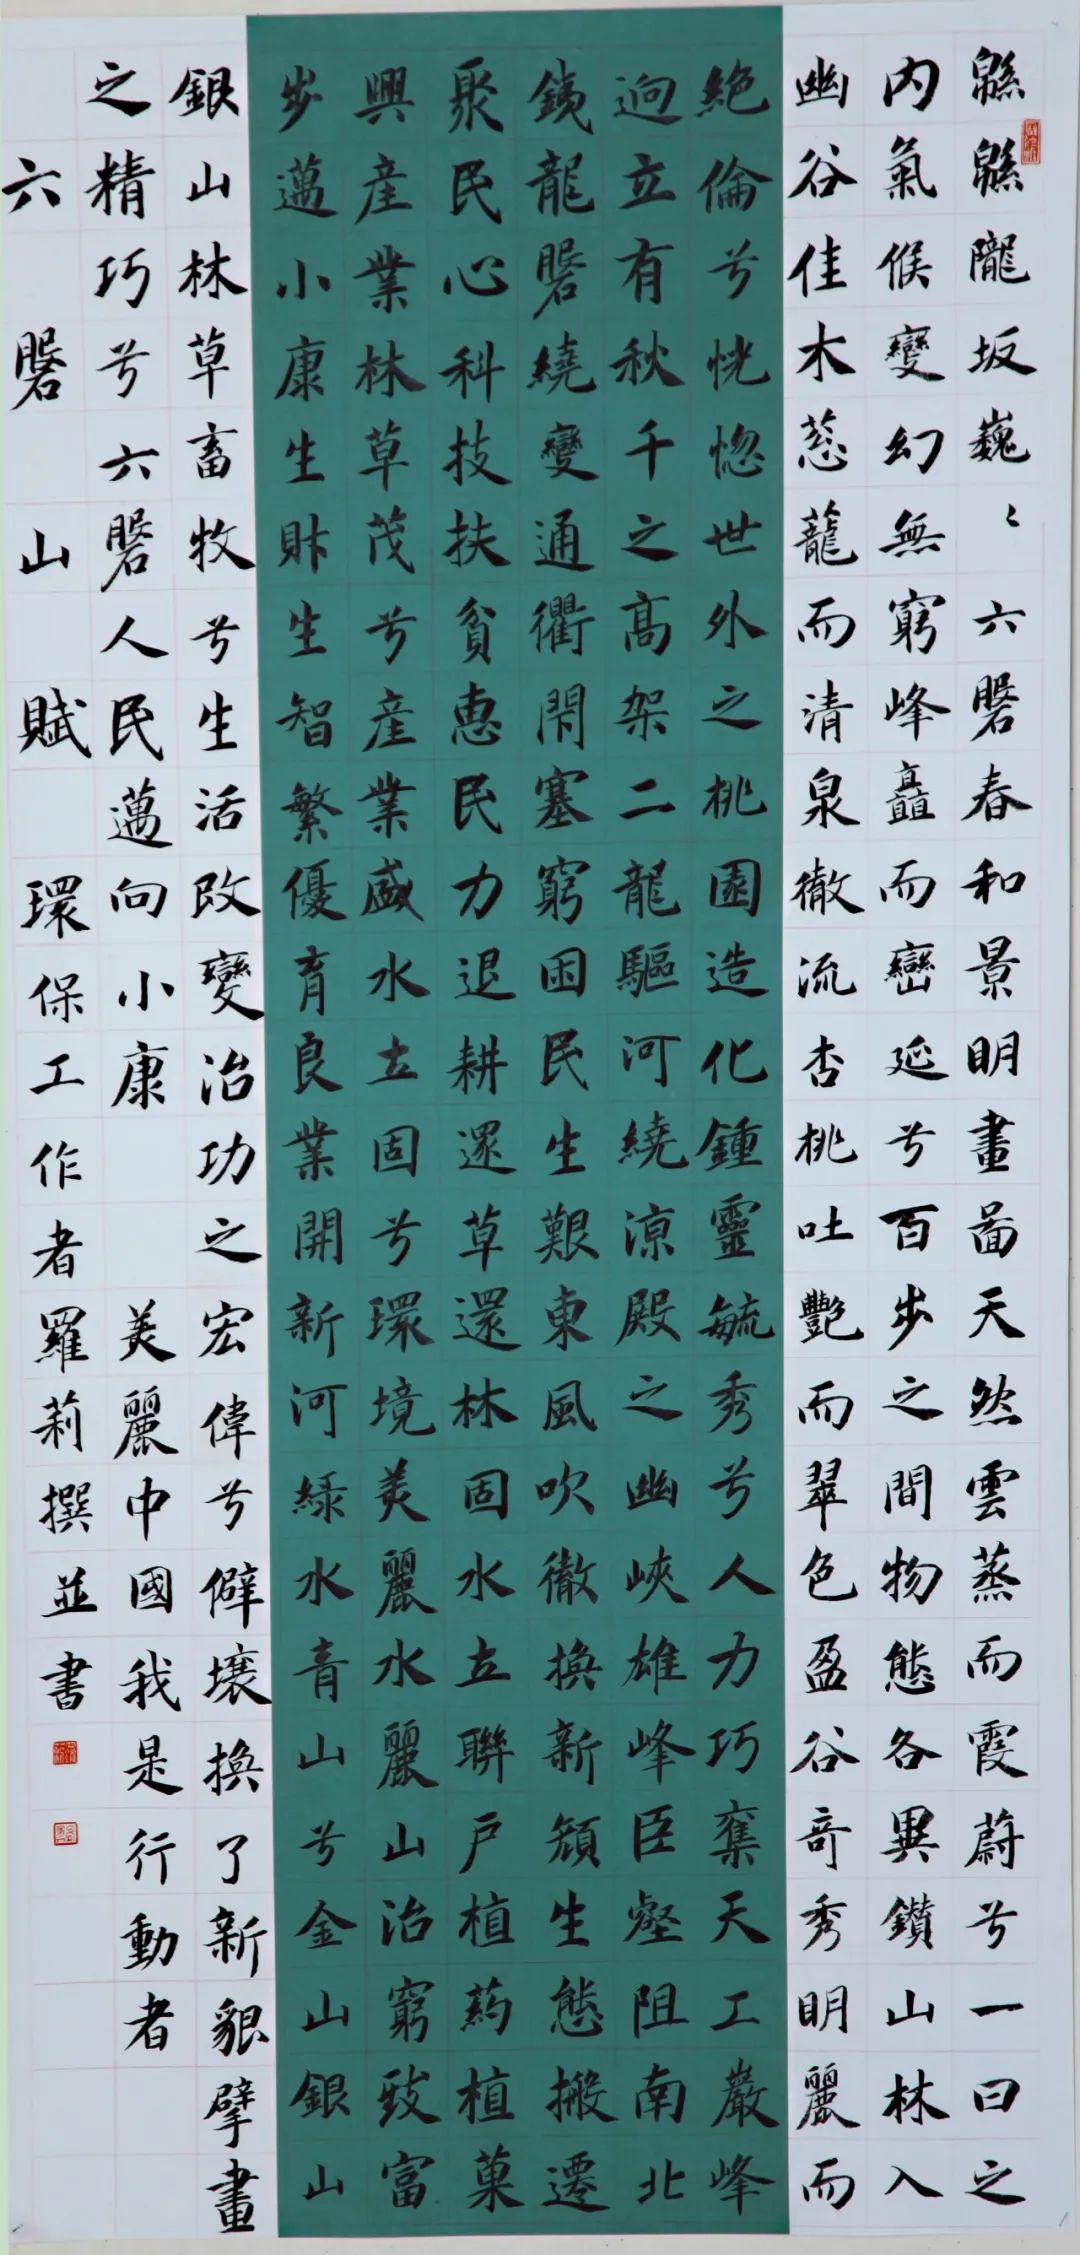 緜緜隴坂巍〻六磐春和景明畫啚天然雲蒸而霞蔚兮一日之
内氣候變幻無窮峰矗而巒延兮百步之間物態各異鑽山林入
幽谷佳木蔥蘢而清泉徹流杏桃吐艷而翠色盈谷奇秀明麗而
絕倫兮恍惚世外之桃園造化鍾靈毓秀兮人力巧奪天工巖峰
迥立有秋千之高架二龍驅河繞涼殿之幽峽雄峰臣壑阻南北
鐵龍磐繞變通衢閉塞窮困民生艱東風吹徹換新顏生態搬遷
聚民心科技扶貧惠民力退耕還草還林固水土聯戶植药植菓
興產業林草茂兮產業盛水土固兮環境美麗水麗山治窮致富
步邁小康生財生智繁優育良業開新河綠水青山兮金山銀山
銀山林草畜牧兮生活改變治功之宏偉兮僻壤換了新貌擘畫
之精巧兮六磐人民邁向小康 美麗中國我是行動者
六磐山賦 環保工作者羅莉撰並書